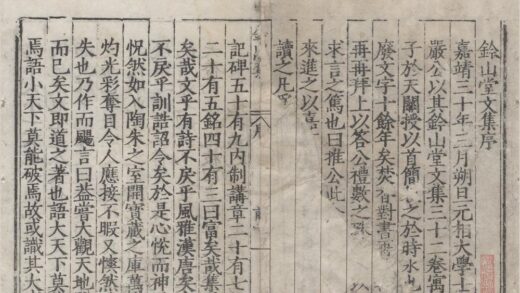 鈐山堂文集序
嘉靖三十年二月朔旦元相大學士
嚴公以其鈐山堂文集三十二卷寓
子於天關授以首簡 之於時水
廢文字十餘年矣焚 對書
再再拜上以答公禮數之
求言之篤也曰推公此
來進之以嘉
讀之凡
記碑五十有九內制講章二十有七
二十有五銘四十有三曰富矣哉集
矣哉文乎有詩不戾乎風雅漢唐矣
不戾乎訓誥詔令矣於是心恍而神
恍然如入陶朱之室開寶藏之庫萬
灼光彩奪目令人應接不暇又惙然
失也乃作而颺言曰益嘗大觀天地
而已矣文即道之著也語大天下莫
焉語小天下莫能破焉故或識其大